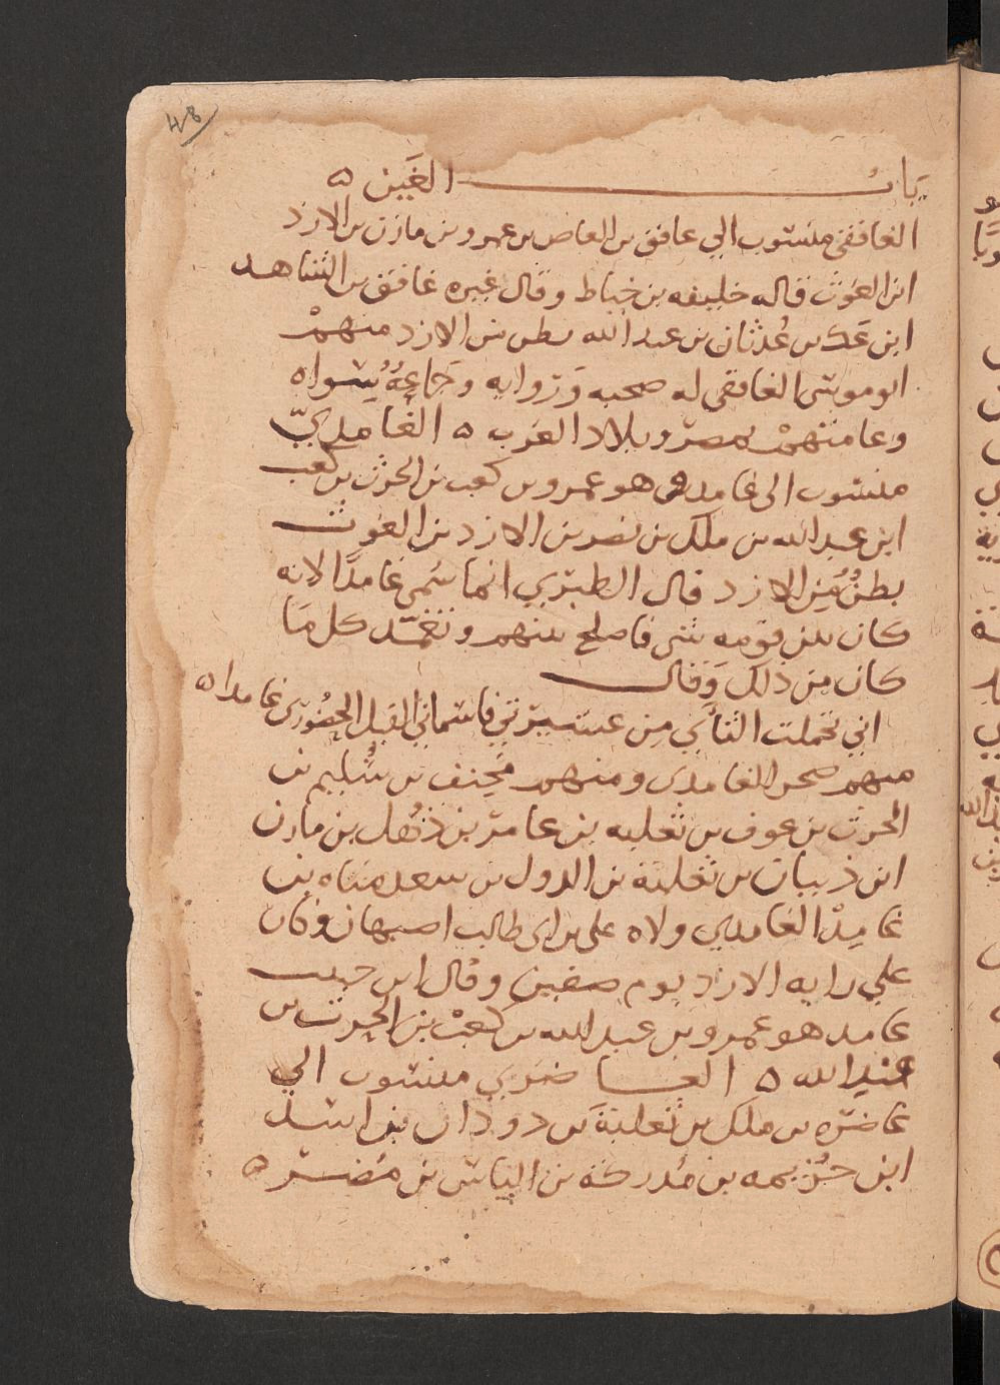 48
باب الغين ه
الغافقي منسوب الي غافق بن العاص بن عمرو بن مازن بن الازد
ابن الغوث قاله خليفه بن خياط وقال غيره غافق بن الشاهد
ابن عك بن عدثان بن عبد الله بطن من الازد منهم
ابو موسى الغافقي له صحبه وروايه وجماعة سواه
وعامتهم بمصر وبلاد الغرب ه الغامدي
منسوب الى غامد هو عمرو بن كعب بن الحرث بن كعب
ابن عبد الله بن ملك بن نصر بن الازد بن الغوث
بطن من الازد قال الطبري انما سمي غامدا لانه
كان بين قومه شي فاصلح بينهم وتغمد كل ما
كان من ذلك وقال
اني تحملت الثأي من عشيرتي فاسماني القيل الحضوري غامدا ه
منهم صخر الغامدي ومنهم مخنف بن سليم بن
الحرث بن عوف بن ثعلبه بن عامر بن ذهل بن مازن
ابن ذبيان بن ثعلبة بن الدول بن سعد مناه بن
غامد الغامدي ولاه علي بن ابى طالب اصبهان وكان
علي رايه الازد يوم صفين وقال ابن حبيب
غامد هو عمرو بن عبد الله بن كعب بن الحرث بن
عبد الله ه الغاضري منسوب الي
غاضره بن ملك بن ثعلبة بن دودان بن اسد
ابن خزيمه بن مدركة بن الياس بن مضر ه